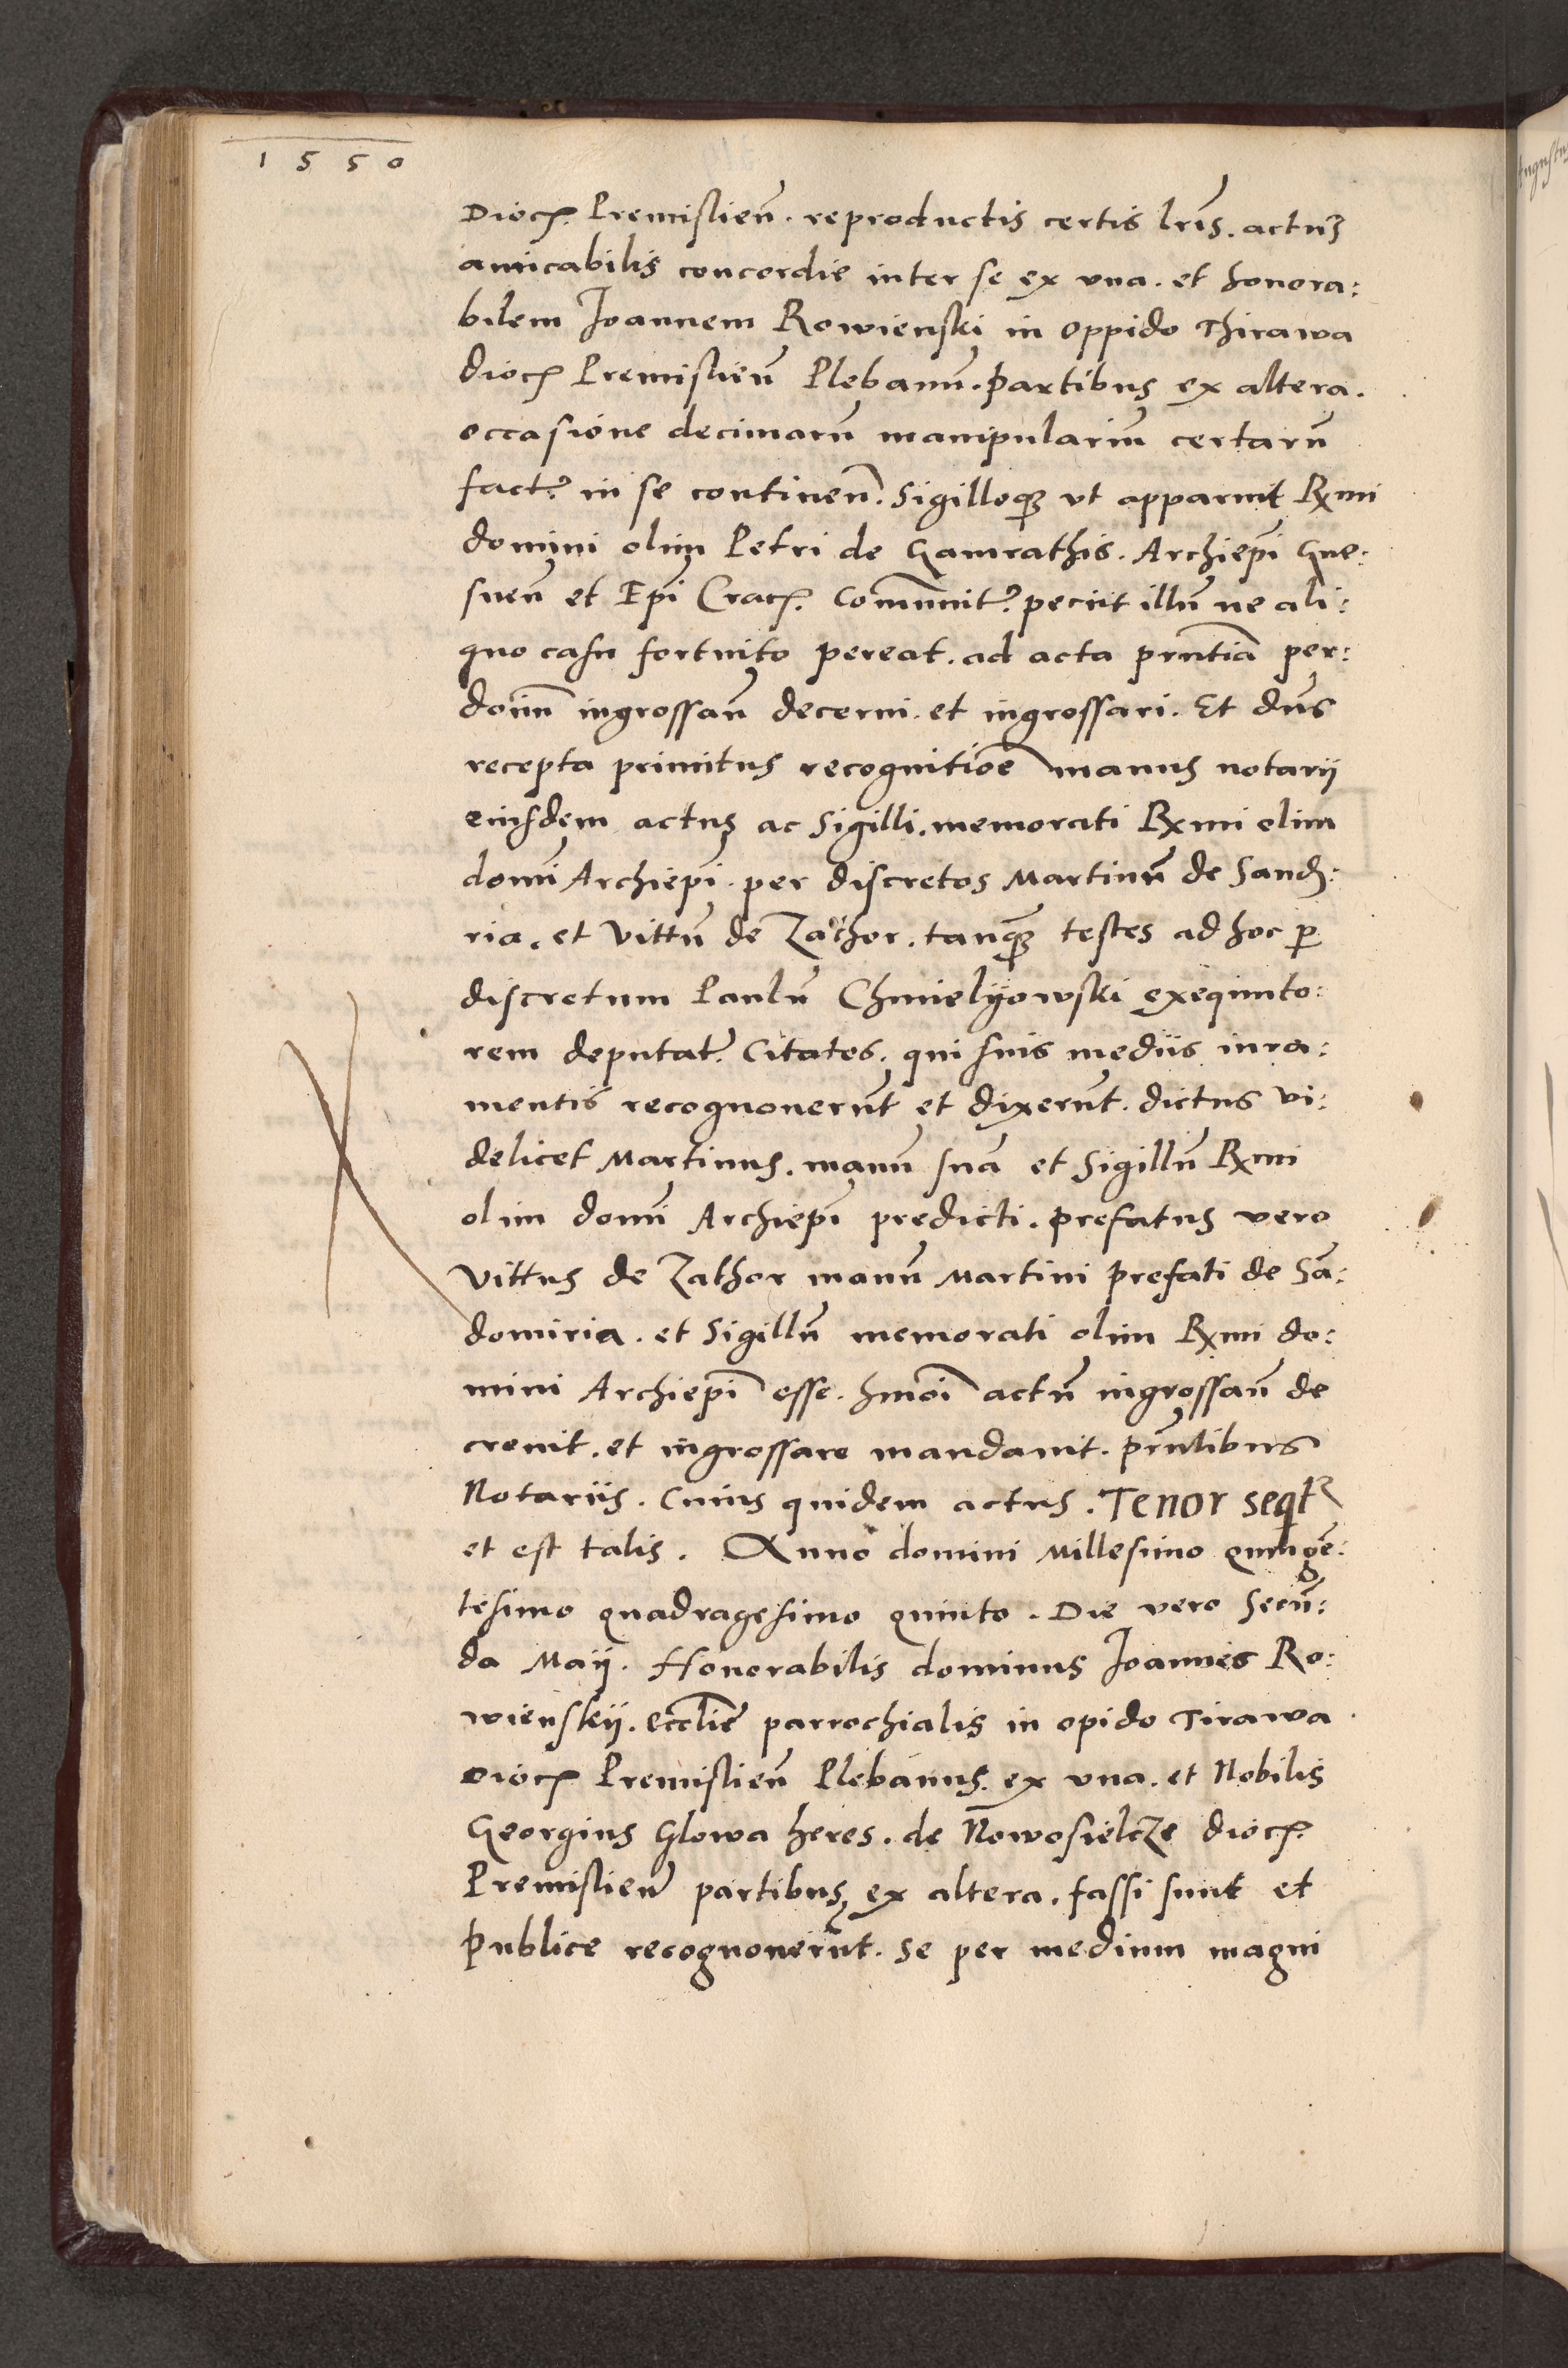 1550
Dioc. Premislien̄. reproductis certis lr̄is. actum
amicabilis concordie inter se ex vna. et honora:
bilem Joannem Rowienski in oppido Thirawa
dioc. Premislien̄ Plebanū. partibus ex altera.
occasione decimarū manipularium certarū
fact. in se continen̄. Sigilloq; vt apparuit Rx̄mi
domini olim Petri de Gamrathis. Archiep̄i Gne:
snen̄ et Ep̄i Crac. Com̄unit. peciit illum̄ ne ali:
quo casu fortuito pereat. ad acta pn̄tia per:
dōm̄ ingrossan̄ decerni. et ingrossari. Et dn̄s
recepta primitus recognitiōe manus notarij
eiusdem actus ac Sigilli. memorati Rx̄mi olim
domi Archiep̄i. per discretos Martinū de Sando:
ria. et Vittū de Zathor. tanq̄; testes ad hoc p̄
discretum Paulū Chmielyowski exequuto:
rem deputat. Citatos. qui suis mediis iura:
mentis recognouerūt et dixerūt. dictus vi:
delicet Martinus. manū suā et Sigillū Rx̄mi
olim domi Archiep̄i predicti. prefatus vero
Vittus de Zathor manū Martini prefati de Sā:
domiria. et Sigillū memorati olim Rx̄mi do:
mini Archiep̄i esse. hm̄oi actū ingrossan̄ de
creuit. et ingrossare mandauit. pn̄tibus
Notariis. Cuius quidem actus. Tenor seqt̄r
et est talis. Anno domini Millesimo quingē:
tesimo quadragesimo quinto. Die vero Secū:
da Maij. Honorabilis dominus Joannes Ro:
wienskij. eccl̄ie parrochialis in opido Tirawa
Dioc. Premislien̄ Plebanus. ex vna. et Nobilis
Georgius Glowa heres. de Nowosielcze dioc.
Premislien̄ partibus ex altera. fassi sunt et
publice recognouerūt. se per medium magni